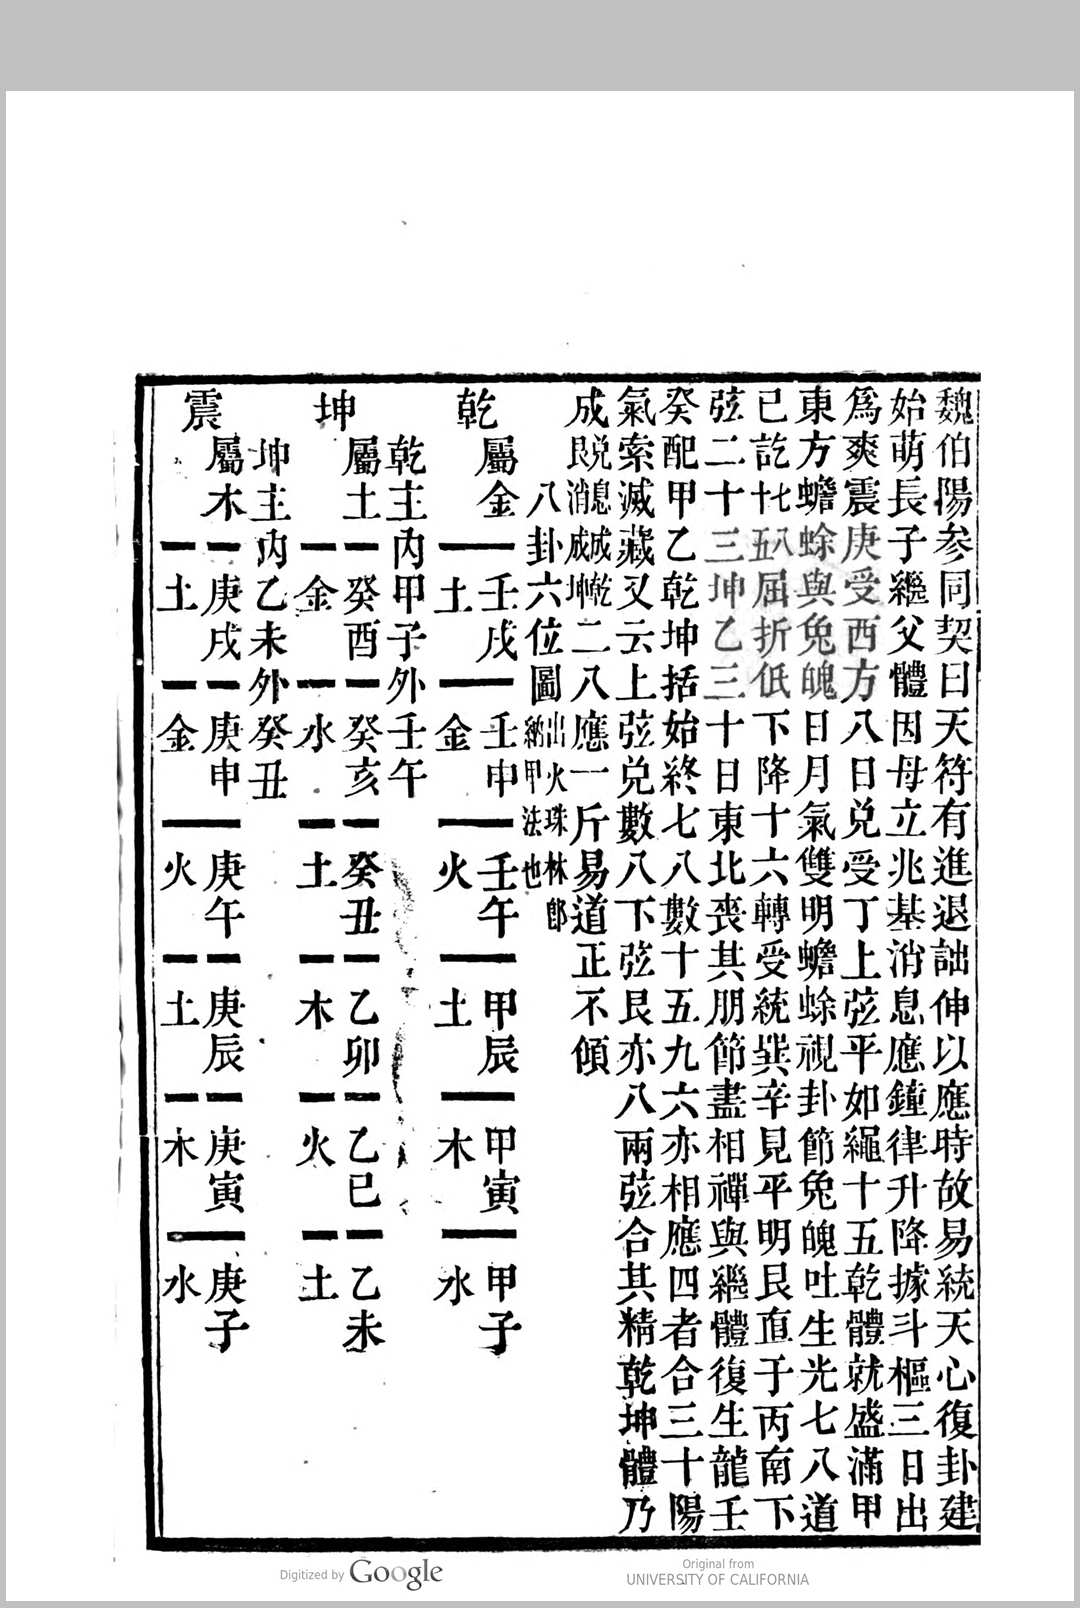 魏伯陽參同契曰天符有進退詘伸以應時故易統天心復卦建
始萌長子繼父體因母立兆基消息應鐘律升降據斗樞三日出
爲爽震庚受西方八日兌受丁上弦平如繩十五乾體就盛滿甲
東方蟾蜍與兔魄日月氣雙明蟾蜍視卦節兔魄吐生光七八道
已訖十七五八屈折低下降十六轉受統巽辛見平明艮直于丙南下
弦二十三坤乙三十日東北喪其朋節盡相禪與繼體復生龍壬
癸配甲乙乾坤括始終七八數十五九六亦相應四者合三十陽
氣索滅藏又云上弦兌數八下弦艮亦八兩弦合其精乾坤體乃
成兌息成乾艮消成坤二八應一斤易道正不傾
八卦六位圖出火珠林郎納甲法也
乾
屬金
壬戌土
壬申金
壬午火
甲辰土
甲寅木
甲子水
乾主內甲子外壬午
坤
屬土
癸酉金
癸亥水
癸丑土
乙卯木
乙巳火
乙未土
坤主內乙未外癸丑
震
屬木
庚戌土
庚申金
庚午火
庚辰土
庚寅木
庚子水
Digitized by Google
Original from
UNIVERSITY OF CALIFORNIA